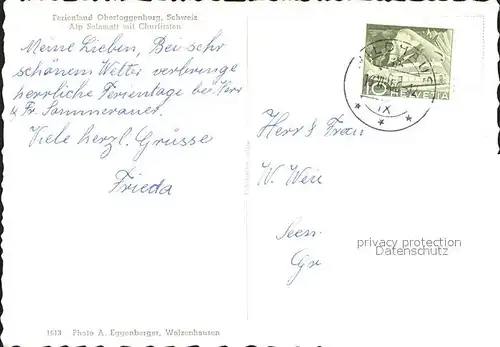 Ferienland Obertoggenburg, Schweiz
Alp Selamatt mit Churfirsten
Meine Lieben, Bei sehr
schönem Wetter verbringe
herrliche Ferientage bei Herr
& Fr. Sommerauer.
Viele herzl. Grüsse
Frieda
WILDHAUS
10 HELVETIA
IX
Herr & Frau
W.
privacy protection
Datenschutz
1613 Photo A. Eggenberger, Walzenhausen